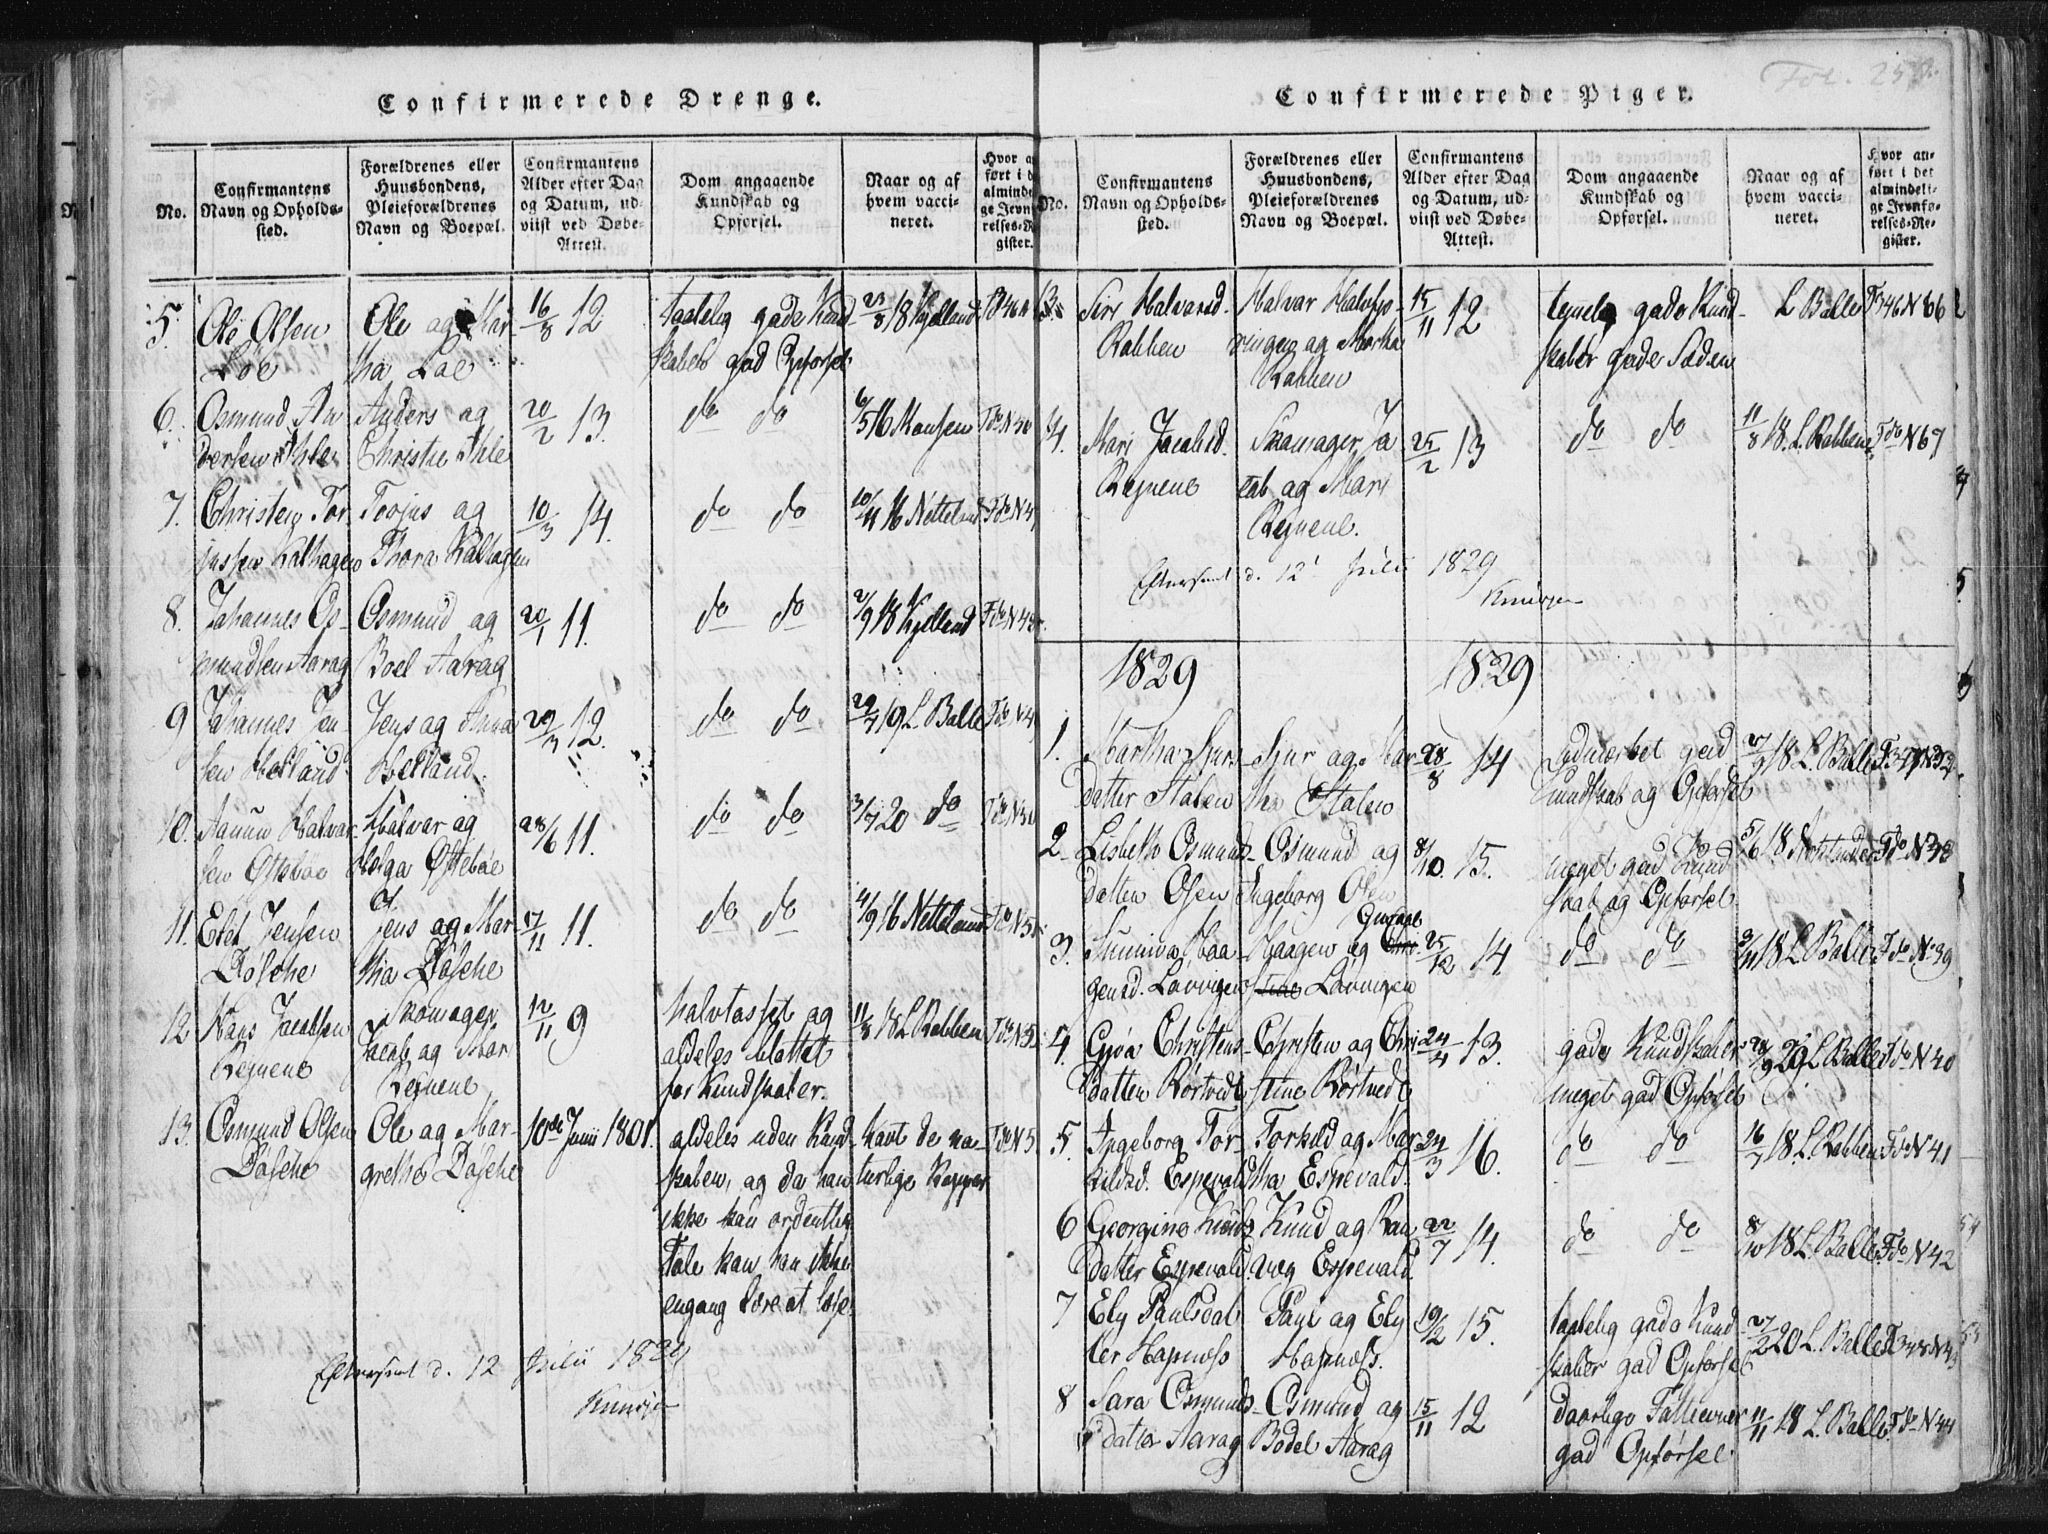 Fol. 25
Confirmerede Drenge.
No.
Confirmantens Navn og Opholds-sted.
Forældrenes eller Huusbondens, Pleieforældrenes Navn og Boepæl.
Confirmantens Alder efter Dag og Datum, ud-viist ved Døbe-Attest.
Dom angaaende Kundskab og Opførsel.
Naar og af hvem vacci-neret.
5.
Ole Olsen
Løe
Ole og Mar-
tha Løe
16/8 12
taalelig gode Kund-
skaber god Opførsel
23/8 18 Kjelland
6.
Osmund An
dersen Ihle
Anders og
Christie Ihle
20/2 13.
do do
6/5 16 Hansen
Fdo N
7.
Christen Tor
jussen Kalhagen
Torjus og
Thora Kalhagen
10/3 14.
do do
10/11 16 Netteland
Fdo N
8.
Johannes Os-
mundsen Aarag
Osmund og
Boel Aarag
20/1 11.
do do
2/9 18 Kjelland
Fdo N
9
Johannes Jen-
sen Helland
Jens og Anna
Helland
29/3 12.
do do
29/7 19 L Balle
Fdo N
10.
Aanun Halvor-
sen Østebøe
Halvor og
Helga Østebøe
28/6 11.
do do
3/7 20 do
Fdo N
11.
Elef Jensen
Døsche
Jens og Mar-
tha Døsche
17/11 11.
do do
4/9 16 Netteland
Fdo N
12
Hans Jacobsen
Regnene
Skomager
Jacob og Mari
Regnene
12/11 9
halvtosset og
aldeles blottet
for Kundskaber.
11/8 18 L Robben
Fdo N
13.
Osmund Olsen
Døsche
Ole og Mar-
grethe Døsche
10de Junii 1801.
aldeles uden Kund-
skaber, og da han
ikke kan ordentlig
Tale kan han ikke
engang lære at læse
havt de na-
turlige Kopper
Fdo N
Efterseet d. 12 Julii 1829
Confirmerede Piger.
No.
Confirmantens Navn og Opholds-sted.
Forældrenes eller Huusbondens, Pleieforældrenes Navn og Boepæl.
Confirmantens Alder efter Dag og Datum, ud-viist ved Døbe-Attest.
Dom angaaende Kundskab og Opførsel.
Naar og af hvem vacci-neret.
Hvor an-ført i det almindeli-ge Jevnfø-relses-Re-gister.
Siri Halvorsd.
Robben
Halvor
og Martha
Robben
15/11 12
gode Kund-
skaber gode Sæder
L Balle
F 346 N 66
14.
Mari Jacobsd.
Regnene
Skomager Ja
cob og Mari
Regnene.
25/2 13
do do
11/8 18. L. Robben
Fdo N 67
Efterseet d. 12 Julii 1829
1829 1829
1.
Martha Sjurs-
datter Stølen
Sjur og Mar
tha Stølen
28/8 14
udmærket god
Kundskab og Opførsel
18 L. Balle
2.
Lisbeth Osmunds-
datter Osen
Osmund og
Ingeborg Osen
8/10. 15.
meget god Kund
skab og Opførsel
Fdo N 38
3.
Sunniva Haa-
gensd. Lavvigen
Haagen og
Lavvigen
25/12 14
do do
3/11 18 L Balle
Fdo No 39
4.
Gjøa Christens-
datter Rørtvedt
Christen og Chri
stine Rørtvedt
24/4 13.
gode Kundskaber
meget god Opførsel
L Balle
Fdo N 40
5.
Ingeborg Tor-
kildsd. Espevold
Torkild og Mar
tha Espevold.
24/3 16.
do do
16/7 18. L. Robben
Fdo N 41
6
Georgine Knuds-
datter Espevold.
Knud og Ran
veg Espevold.
22/7 14.
do do
8/10 18 L. Balle
Fdo N 42
7
Ely Poulsdat
ter Hapnæss
Poul og Ely
Hapnæss.
19/2 15.
taalelig gode Kund
skaber god Opførsel
27/2 20 L. Balle
F 348 N 43
8
Sara Osmunds-
datter Aarag
Osmund og
Bodel Aarag
15/11 12
daarlige Fatteevner
god Opførsel
18 L. Balle
Fdo N 44